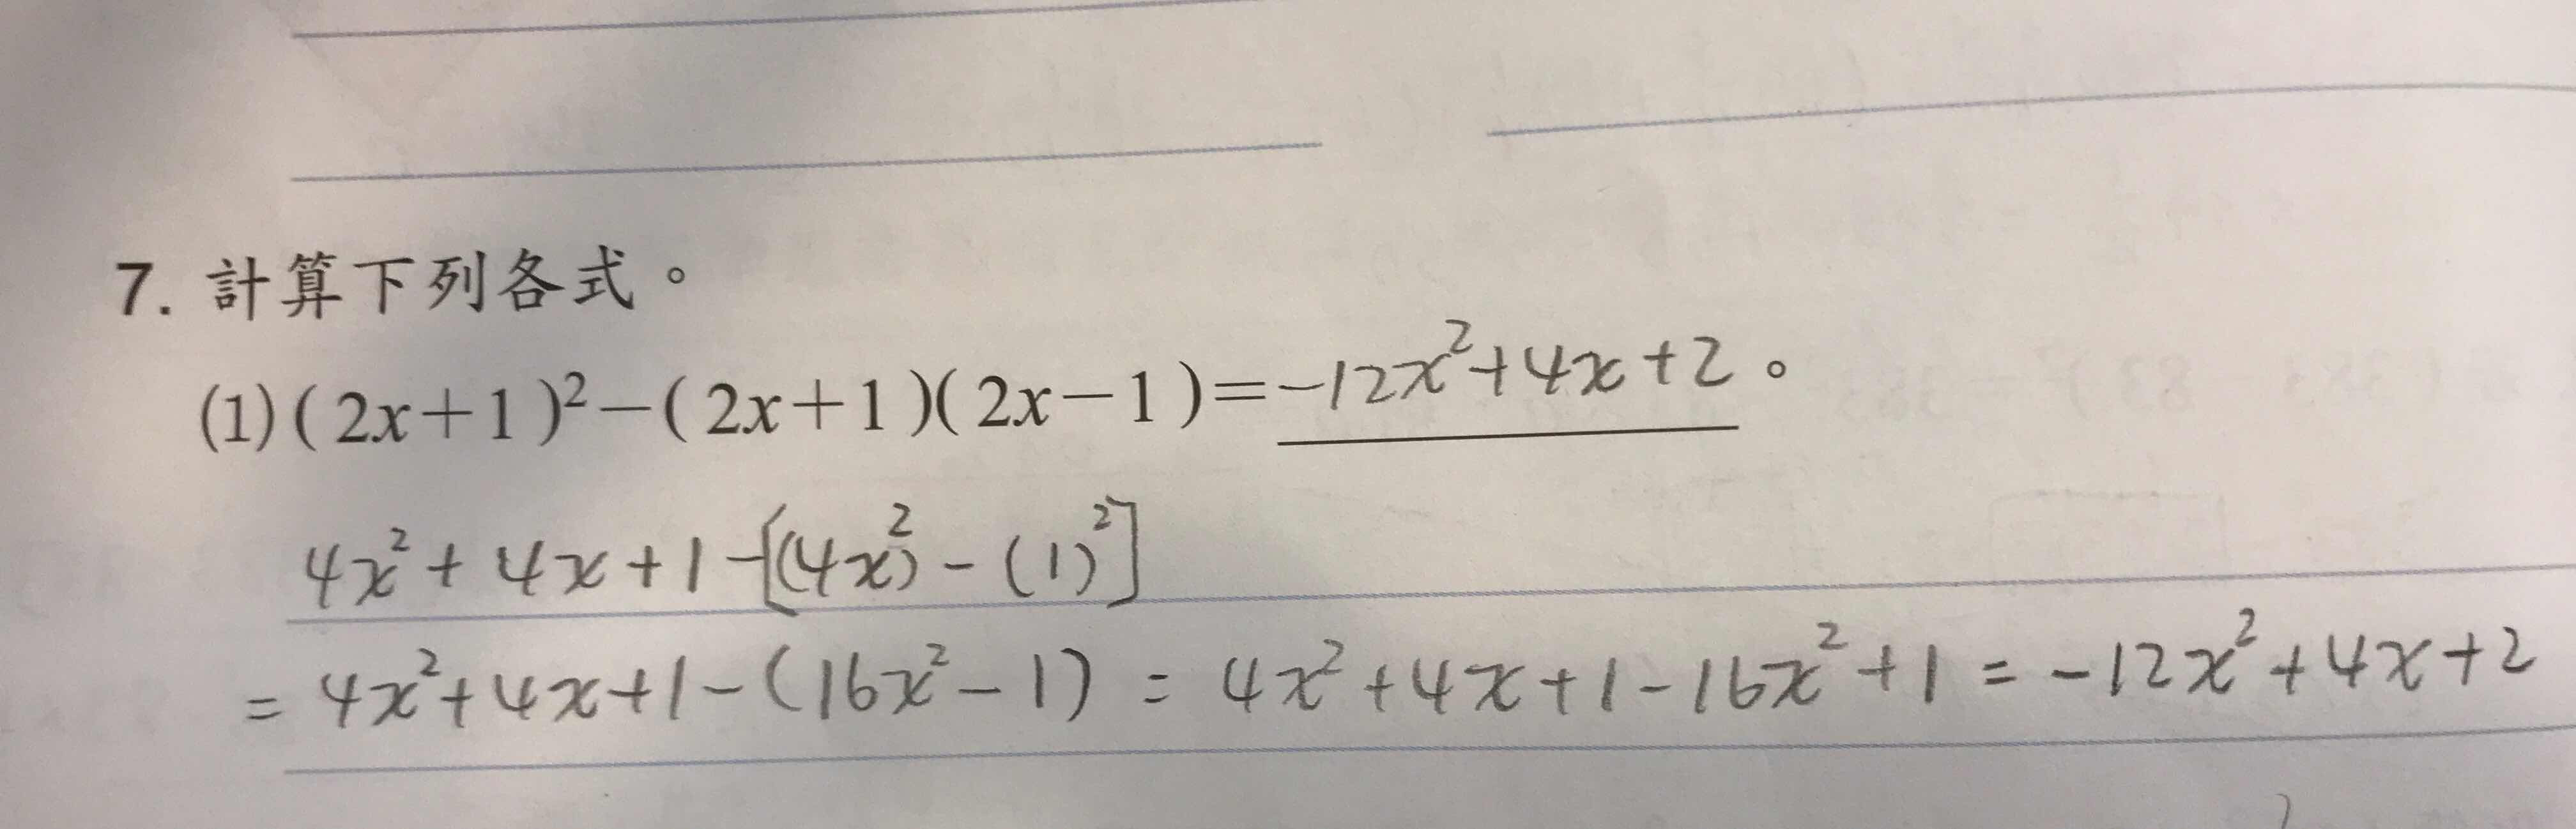 7. 計算下列各式。
(1)(2x+1)²-(2x+1)(2x-1)=-12x²+4x+2。
4x²+4x+1-[(4x)²-(1)²]
=4x²+4x+1-(16x²-1)=4x²+4x+1-16x²+1=-12x²+4x+2